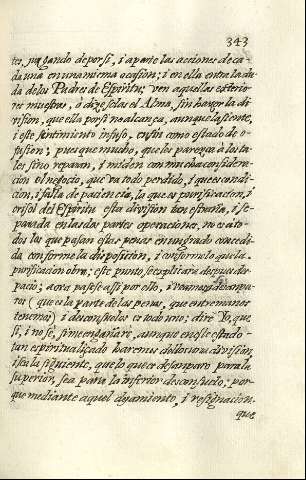 343
tes, juzgando de por sí, i aparte las acciones de ca-
da una en una misma ocasion; i en ella entra la du-
da de los Padres de Espiritu; ven aquellas exterio-
res muestras, ò dizeselas el Alma, sin hazer la di-
visión, que ella por si no alcança, aunque la siente,
i este sentimiento infuso, en sin como estado de o-
fusión; pues que mucho, que les parezca à los ta-
les sino reparan, i miden con mucha considera-
cion el negocio, que va todo perdido, i que es condi-
cion, i falta de paciencia, lo que es purificacion, i
crisol del Espiritu esta división tan estraña, i se-
parada en las dos partes operaciones, no es à to-
dos los que pasan estas penas en un grado concedi-
da conforme la disposición, i conforme lo que la
purificacion obra; este punto se explicará despues des-
pacio; aora pasese assi por ello, i veamos
res (que es la parte de las penas, que entre manos
tenemos) i desconsuelos es todo uno; dire Yo, que
si, i no sé, si me engañaré, aunque en este estado
tan espiritualiçado haremos division,
i sea la siguiente, que lo que es desamparo para la
superior, sea para la inferior desconsuelo; por-
que mediante aquel dejamiento, i resignacion.
que